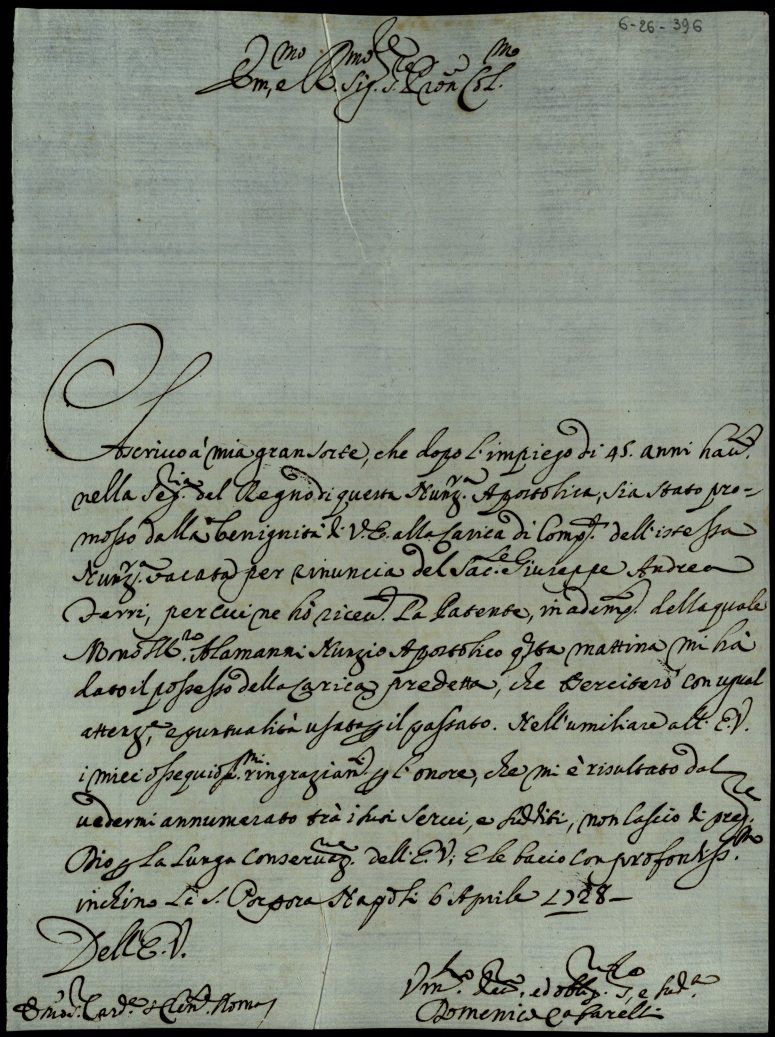 6-26-396
Em.mo e R.mo Sig.re Sig.re P.ron Col.mo
Ascrivo à mia gran sorte, che dopo l'impiego di 45. anni hav.to
nella Seg.ria del Regno di questa Nunz.ra Apostolica, sia stato pro=
mosso dalla benignità di V.E. alla Carica di Comp.to dell'istessa
Nunz.ra vacata per rinuncia del Sac.te Giuseppe Andrea
per cui ne hò ricev.to La Patente, in ademp.to della quale
Mons Ill.mo Alamanni Nunzio Apostolico q.sta mattina mi hà
dato il possesso della Carica predetta, che eserciterò con ugual
attenz.e, e puntualità usata p il passato. Nell'umiliare all'E.V.
i miei ossequios.mi ringraziam.ti p l'onore, che mi è risultato dal
vedermi annumerato trà i suoi servi, e sudditi, non lascio di preg.re
Dio p La Lunga conservaz.ne dell'E.V; E le bacio con profondiss.mo
inchino La S. Porpora Napoli 6 Aprile 1728 —
Dell'E.V.
Em.o S. Card.e S. Clem.te Roma
Um.mo Dev.mo, ed obblig.mo S.re, e Sud.o
Domenico Cafarelli